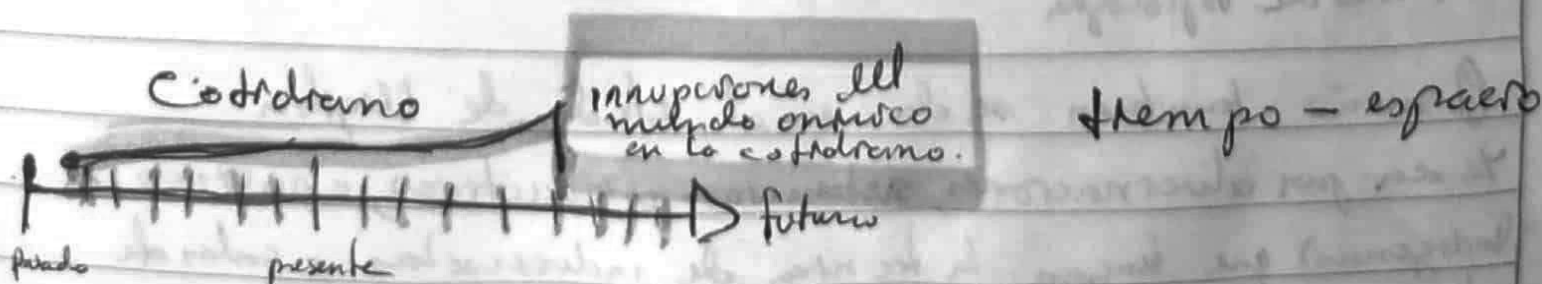 Cotidiano
irrupciones del
mundo onírico
en lo cotidiano.
tiempo - espacio
futuro
pasado
presente